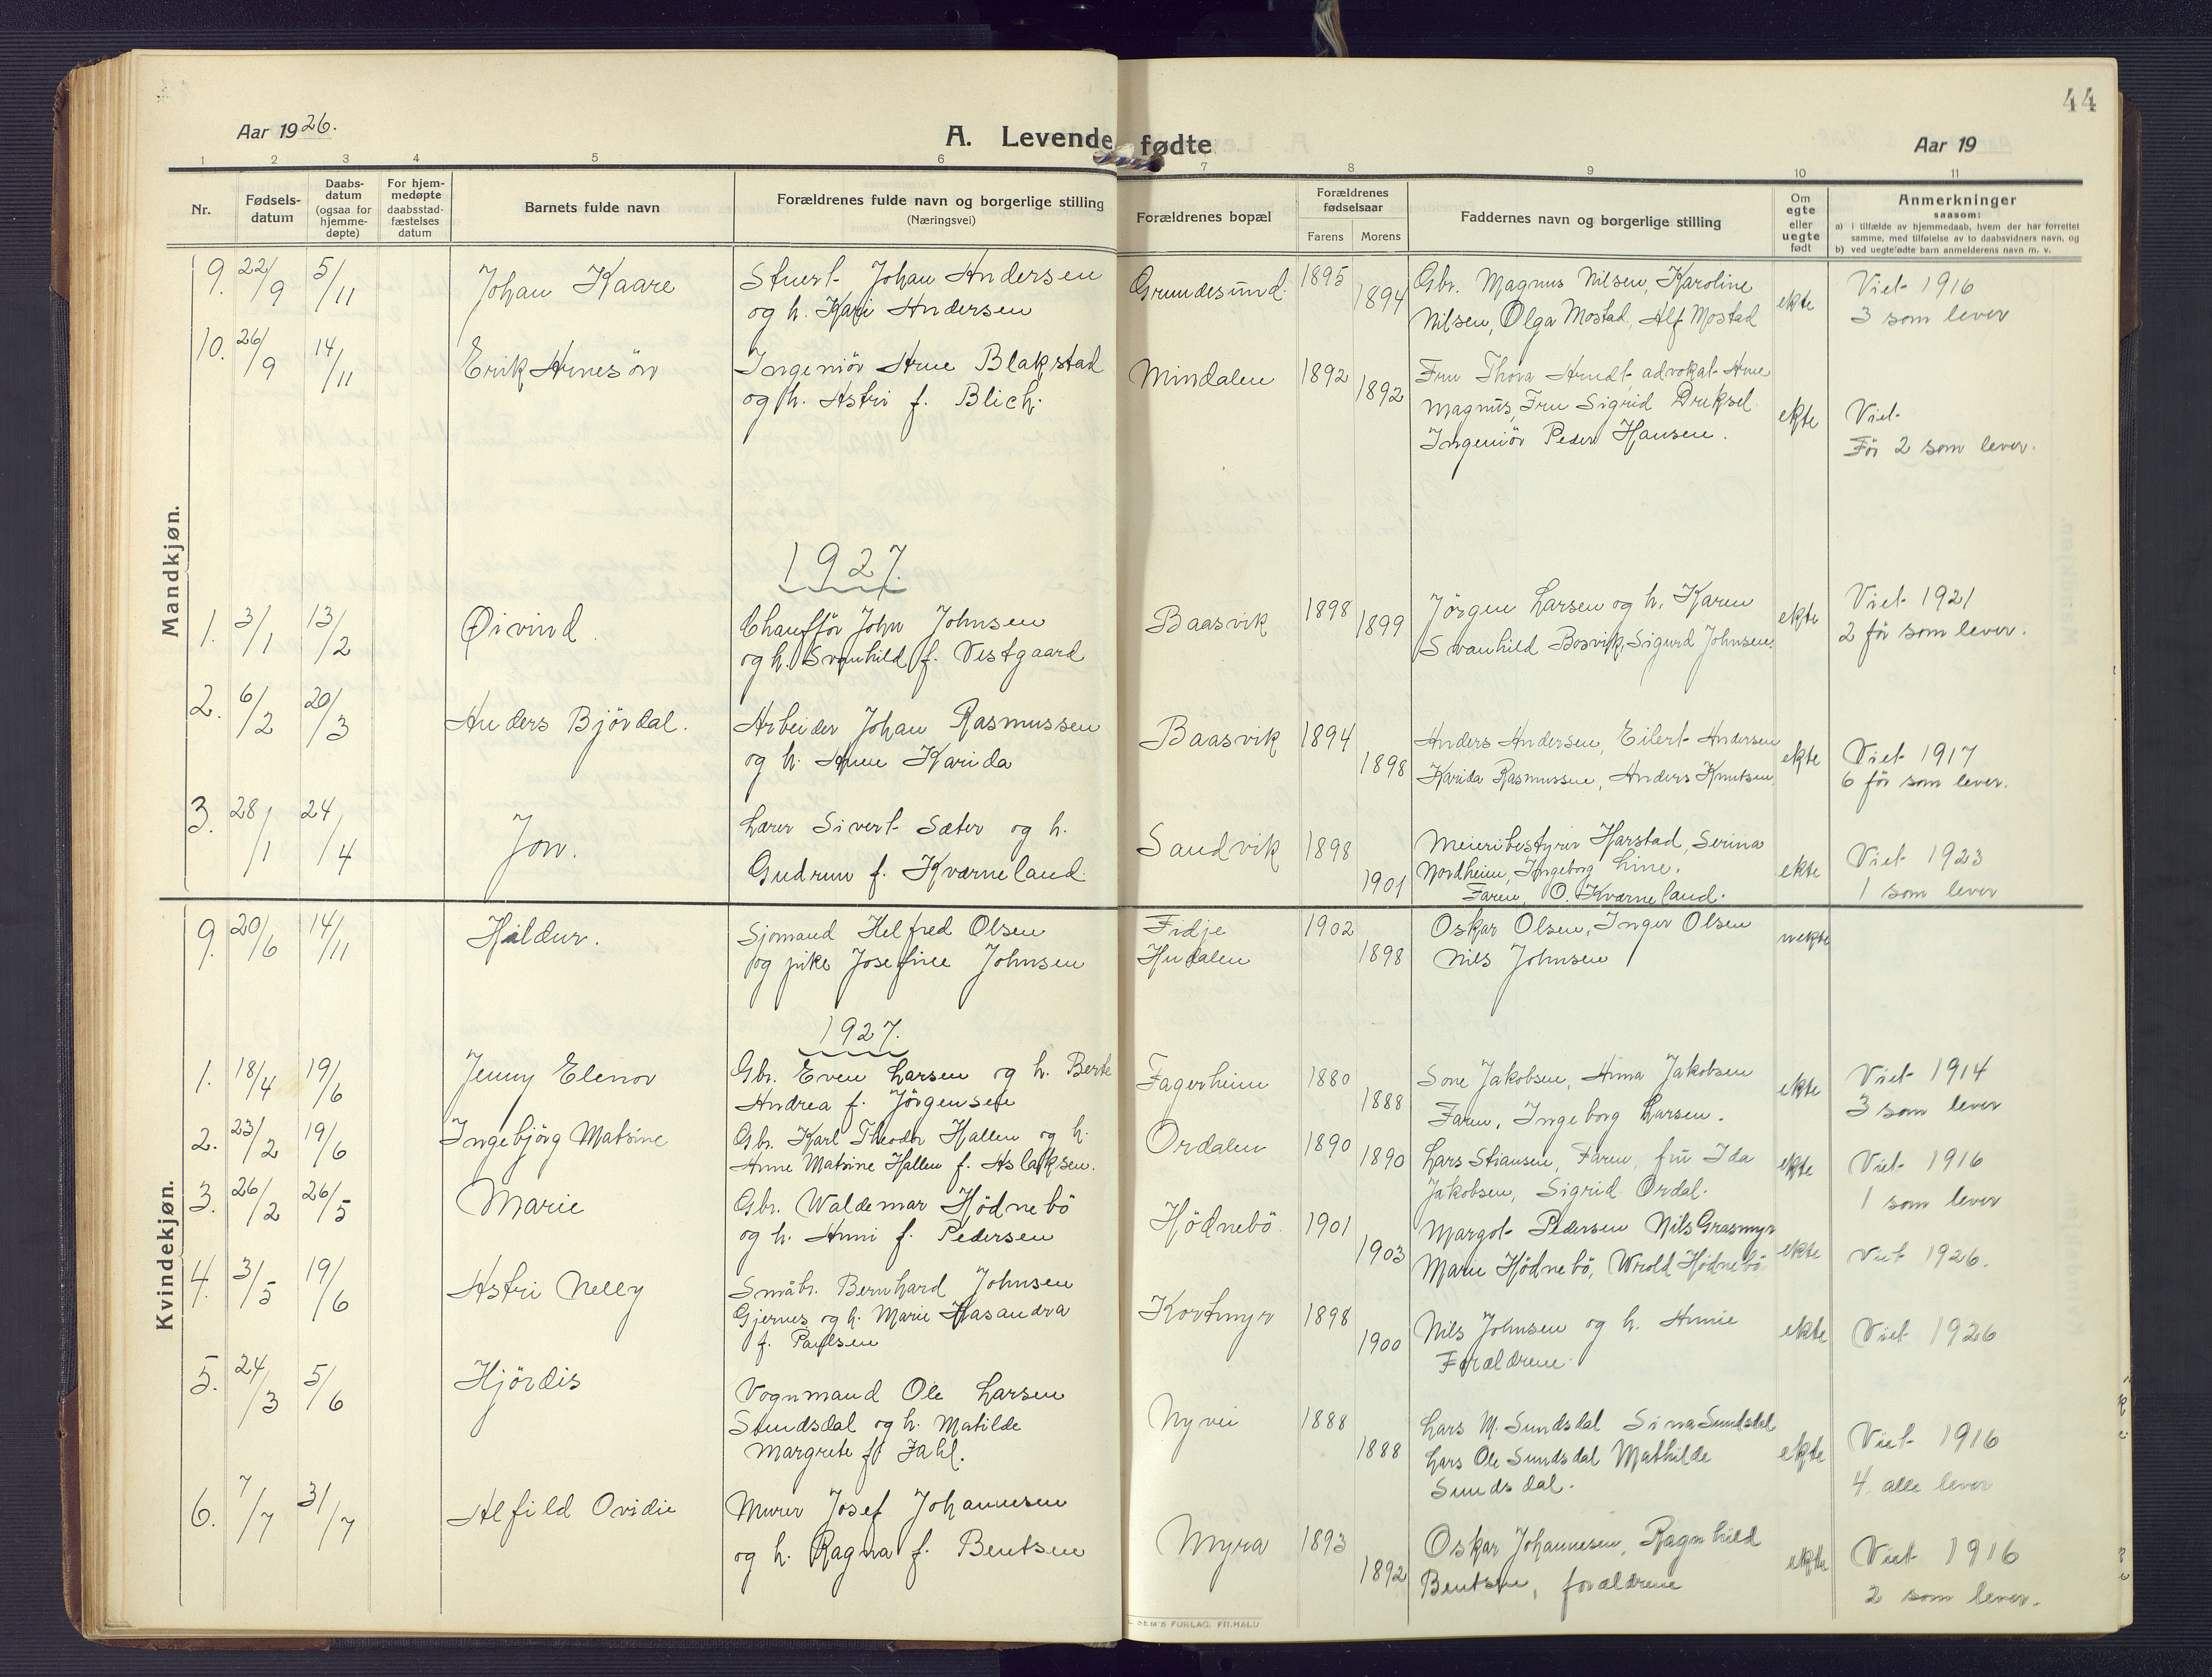 44
Aar 1926.
A. Levende fødte
Aar 19
1 2 3 4 5 6 7 8 9 10 11
Nr.
Fødsels-
datum
Daabs-
datum
(ogsaa for
hjemme-
døpte)
For hjem-
medøpte
daabsstad-
fæstelses
datum
Barnets fulde navn
Forældrenes fulde navn og borgerlige stilling
(Næringsvei)
Forældrenes bopæl
Forældrenes
fødselsaar
Farens Morens
Faddernes navn og borgerlige stilling
Om
egte
eller
uegte
født
Anmerkninger
saasom:
a) i tilfælde av hjemmedaab, hvem der har forrettet
samme, med tilføielse av to daabsvidners navn, og
b) ved uegtefødte barn anmelderens navn m. v.
Mandkjøn.
9. 22/9 5/11 Johan Kaare
Stuert Johan Andersen
og h. Kari Andersen
Grundesund. 1895 1894
Gbr. Magnus Nilsen, Karoline
Nilsen, Olga Mostad, Alf Mostad
ekte
Viet 1916
3 som lever
10. 26/9 14/11 Erik Arnesön
Ingeniör Arne Blakstad
og h. Astri f. Blich.
Mindalen 1892 1892
Fru Thora Arndt, advokat Arne
Magnus, Fru Sigrid Dreksel
Ingeniör Peder Hansen.
ekte
Viet
För 2 som lever.
1927.
1. 3/1 13/2 Øivind.
Chafför John Johnsen
og h. Svanhild f. Vestgaard
Baasvik 1898 1899
Jörgen Larsen og h. Karen
Svanhild Bosvik, Sigurd Johnsen.
ekte
Viet 1921
2 för som lever.
2. 6/2 20/3 Anders Björdal.
Arbeider Johan Rasmussen
og h. Anne Karida
Baasvik 1894 1898
Anders Andersen, Eilert Andersen
Karida Rasmussen, Anders Knutsen.
ekte
Viet 1917
6 för som lever.
3. 28/1 24/4 Jon.
Lærer Sivert Sæter og h.
Gudrun f. Kværneland
Sandvik 1898 1901
Meieribestyrer Harstad, Serina
Nordheim, Ingeborg Line.
Faren, O. Kværneland.
ekte
Viet 1923
1 som lever
Kvindekjøn.
9. 20/6 14/11 Hildur.
Sjömand Helfred Olsen
og pike Josefine Johnsen
Fidje
Hudalen
1902 1898
Oskar Olsen, Inger Olsen
Nils Johnsen
uekte
1927.
1. 18/4 19/6 Jenny Elenor
Gbr. Even Larsen og h. Berte
Andrea f. Jörgensen
Fagerheim 1880 1888
Sone Jakobsen, Anna Jakobsen
Faren, Ingeborg Larsen.
ekte
Viet 1914
3 som lever
2. 23/2 19/6 Ingebjörg Matsine
Gbr. Karl Theodor Hallen og h.
Anne Matsine Hallen f. Aslaksen.
Ordalen 1890 1890
Lars Stiansen, Faren, fru Ida
Jakobsen, Sigrid Ordal.
ekte
Viet 1916
1 som lever
3. 26/2 26/5 Marie
Gbr. Waldemar Hödnebö
og h. Anni f. Pedersen
Hödnebö. 1901 1903
Margot Pedersen Nils Grasmyr
Marie Hödnebö, Wrold Hödnebö
ekte
Viet 1926.
4. 3/5 19/6 Astri Nelly
Småbr. Bernhard Johnsen
Gjernes og h. Marie Kasandra
f. Paulsen
Kortmyr 1898 1900
Nils Johnsen og h. Annie
Forældrene.
ekte
Viet 1926
5. 24/3 5/6 Hjördis
Vognmand Ole Larsen
Sundsdal og h. Matilde
Margrete f. Fahl.
Nyvei 1888 1888
Lars M. Sundsdal Sina Sundsdal
Lars Ole Sundsdal Mathilde
Sundsdal.
ekte
Viet 1916
4. alle lever
6. 7/7 31/7 Alfild Ovidie
Murer Josef Johannesen
og h. Ragna f. Bentsen
Myra 1893 1892
Oskar Johannesen, Ragnhild
Bentsen, forældrene
ekte
Viet 1916
2 som lever.
SEM'S FORLAG, FR.HALD